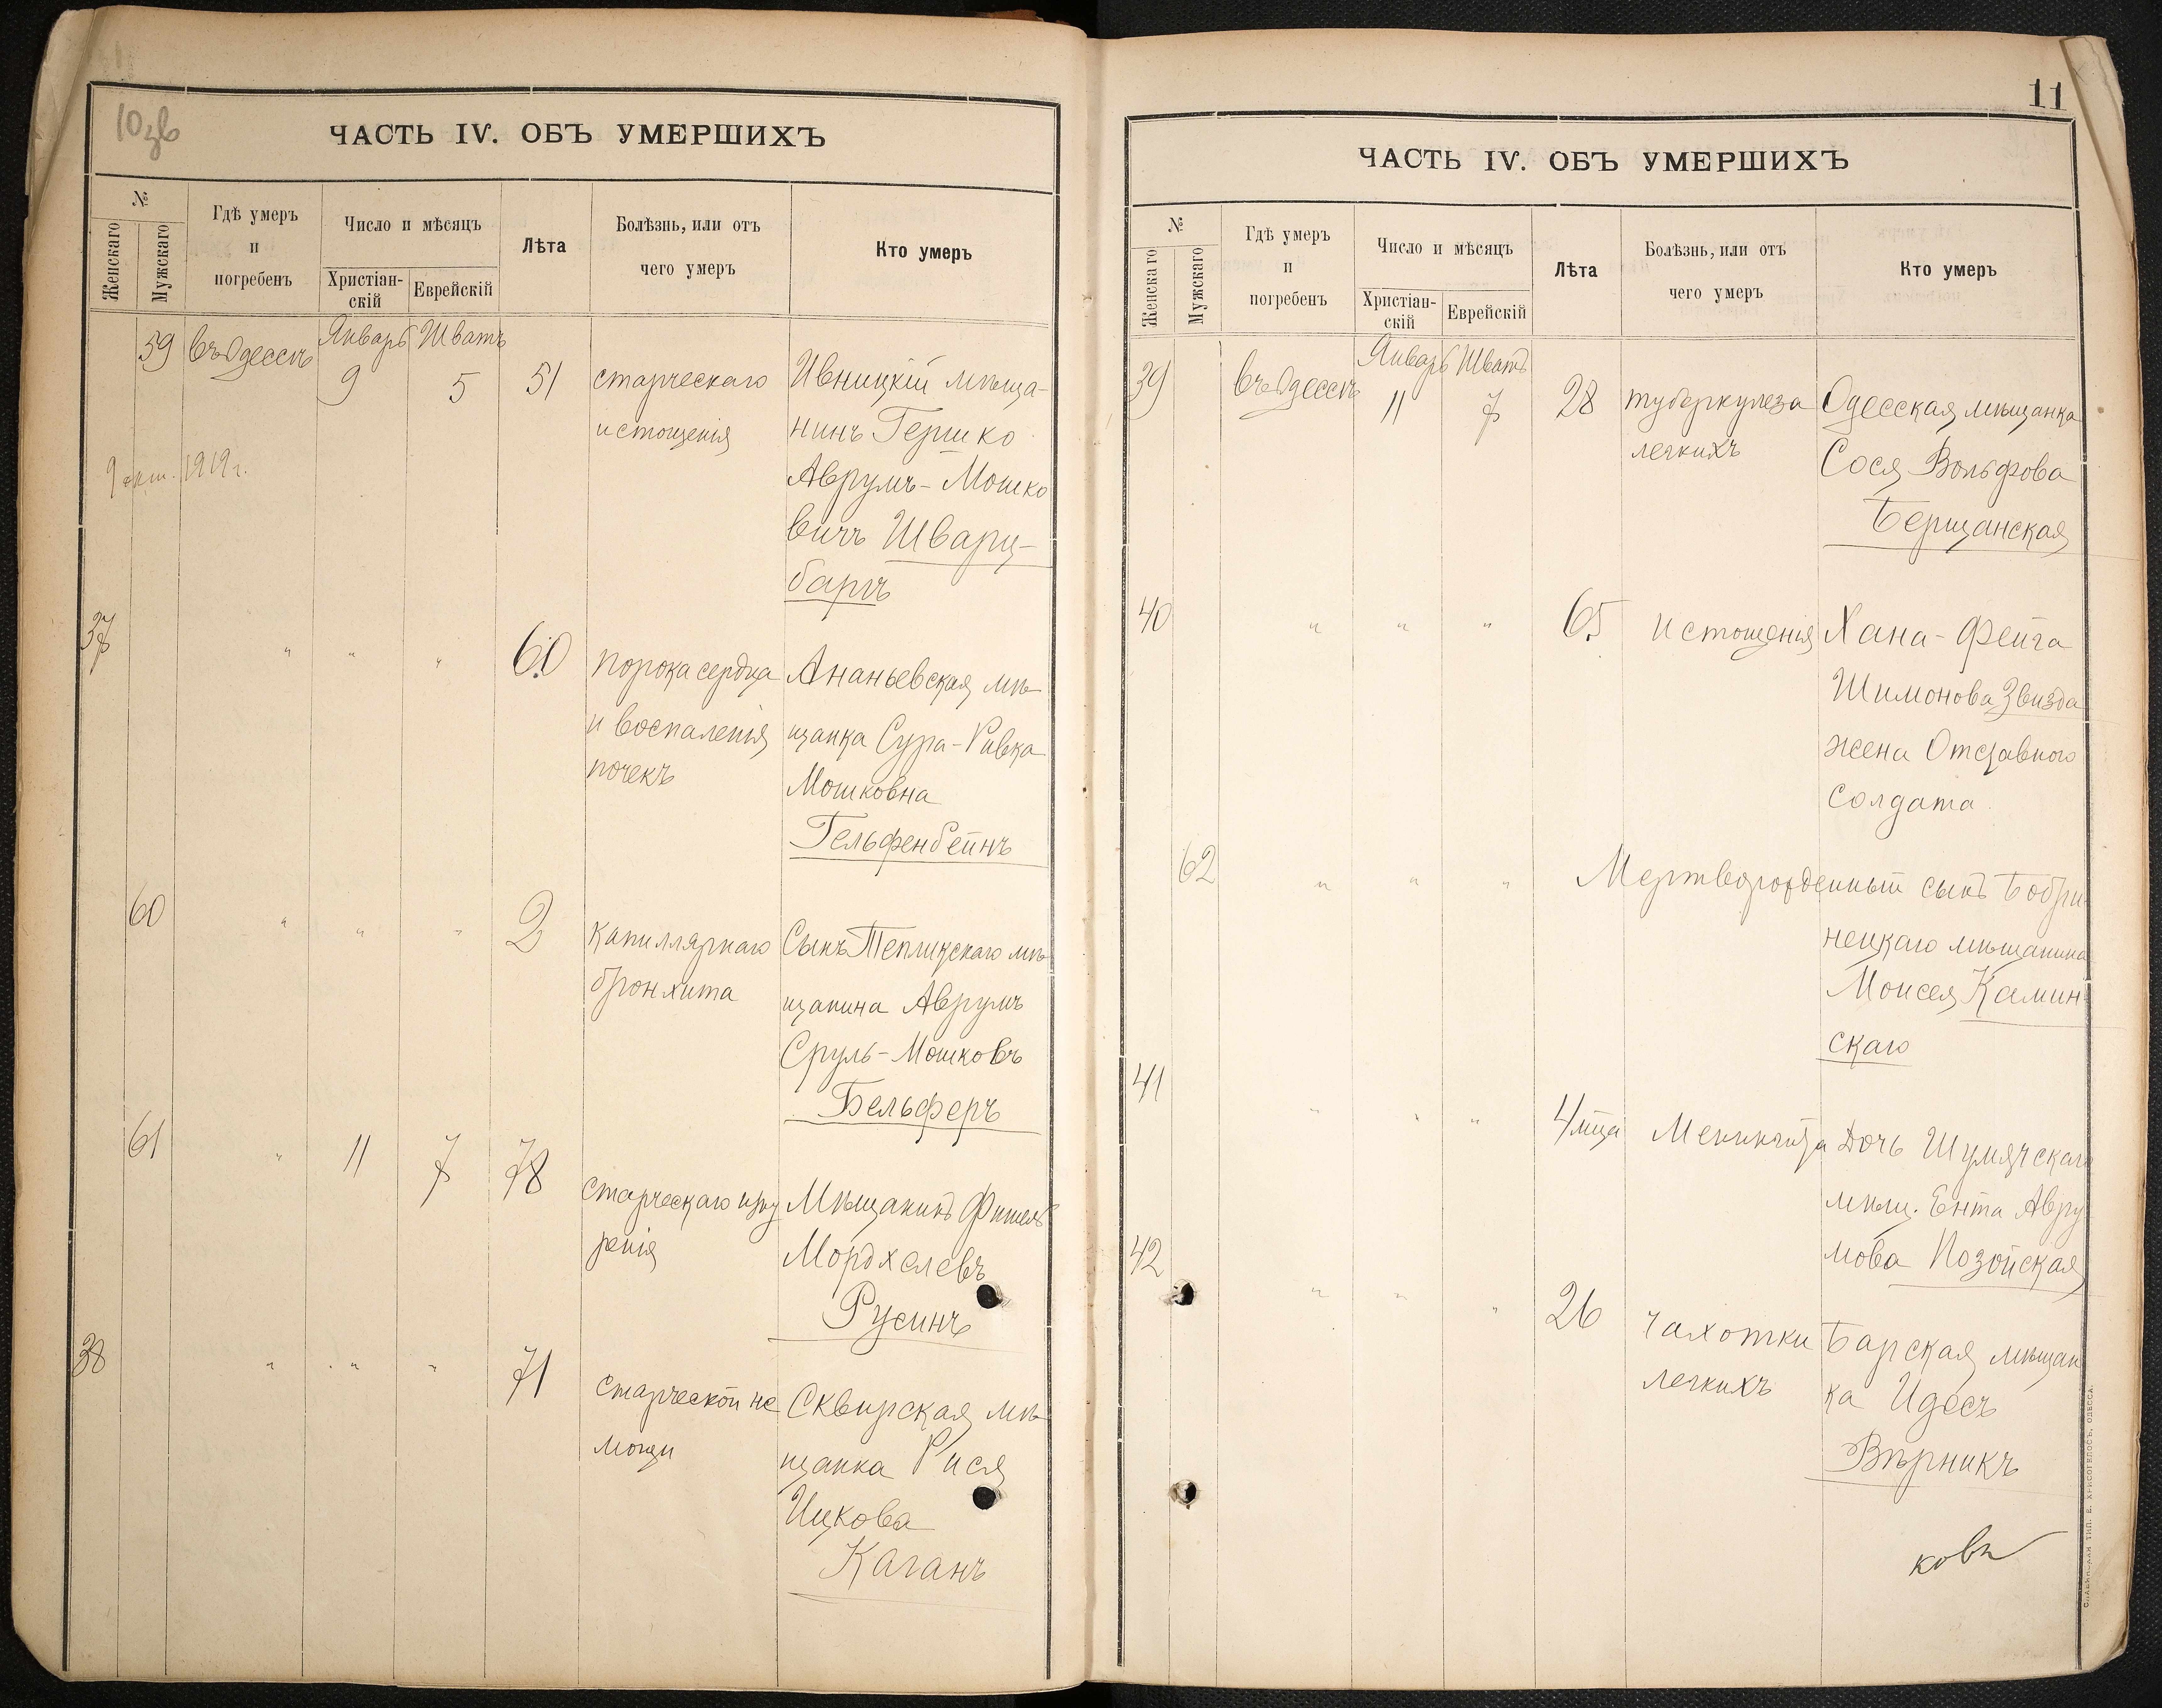 10зв
ЧАСТЬ IV. ОБЪ УМЕРШИХЪ
№
Женскаго
Мужскаго
Гдѣ умеръ
и
погребенъ
Число и мѣсяцъ
Христіан-
скій
Еврейскій
Лѣта
Болѣзнь, или отъ
чего умеръ
Кто умеръ
59 въ Одессѣ Январь 9 Шватъ 5 51 старческаго Ивницкій мѣща-
истощенія нинъ Гершко
Аврумъ-Мошко
вичъ Шварц-
баргъ
9 окт. 1919 г.
37 " " " 60 порока сердца Ананьевская мѣ-
и воспаленія щанка Сура-Ривка
почекъ Мошковна
Гельфенбейнъ
60 " " " 2 капиллярнаго Сынъ Тепликскаго мѣ
бронхита щанина Аврумъ
Сруль-Мошковъ
Бельферъ
61 " 11 7 78 старческаго Мѣщанинъ Фишель
Мордхелевъ
Русинъ
38 " " " 71 старческой не Сквирская мѣ
мощи щанка Рися
Ицкова
Каганъ
11
ЧАСТЬ IV. ОБЪ УМЕРШИХЪ
№
Женскаго
Мужскаго
Гдѣ умеръ
и
погребенъ
Число и мѣсяцъ
Христіан-
скій
Еврейскій
Лѣта
Болѣзнь, или отъ
чего умеръ
Кто умеръ
39 въ Одессѣ Январь 11 Шватъ 7 28 туберкулеза Одесская мѣщанка
легкихъ Сося Вольфова
Берщанская
40 " " " 65 истощенія Хана-Фейга
Шимонова Звизда
жена Отставного
солдата
62 " " " Мертворожденный сынъ Бобри-
нецкаго мѣщанина
Моисея Камин
скаго
41 " " " 4 мца Менингита Дочь Шумячскаго
мѣщ. Ента Авру
мова Позойская
42 " " " 26 чахотки Барская мѣщан
легкихъ ка Идесъ
Вѣрникъ
СЛАВЯНСКАЯ ТИП. Е. ХРИСОГЕЛОСЪ, ОДЕССА.